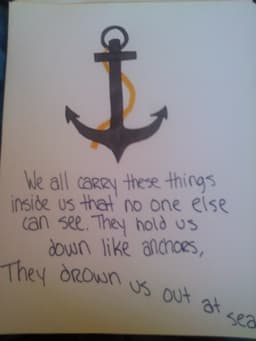 We all carry these things
inside us that no one else
can see. They hold us
down like anchors,
They drown us out at sea